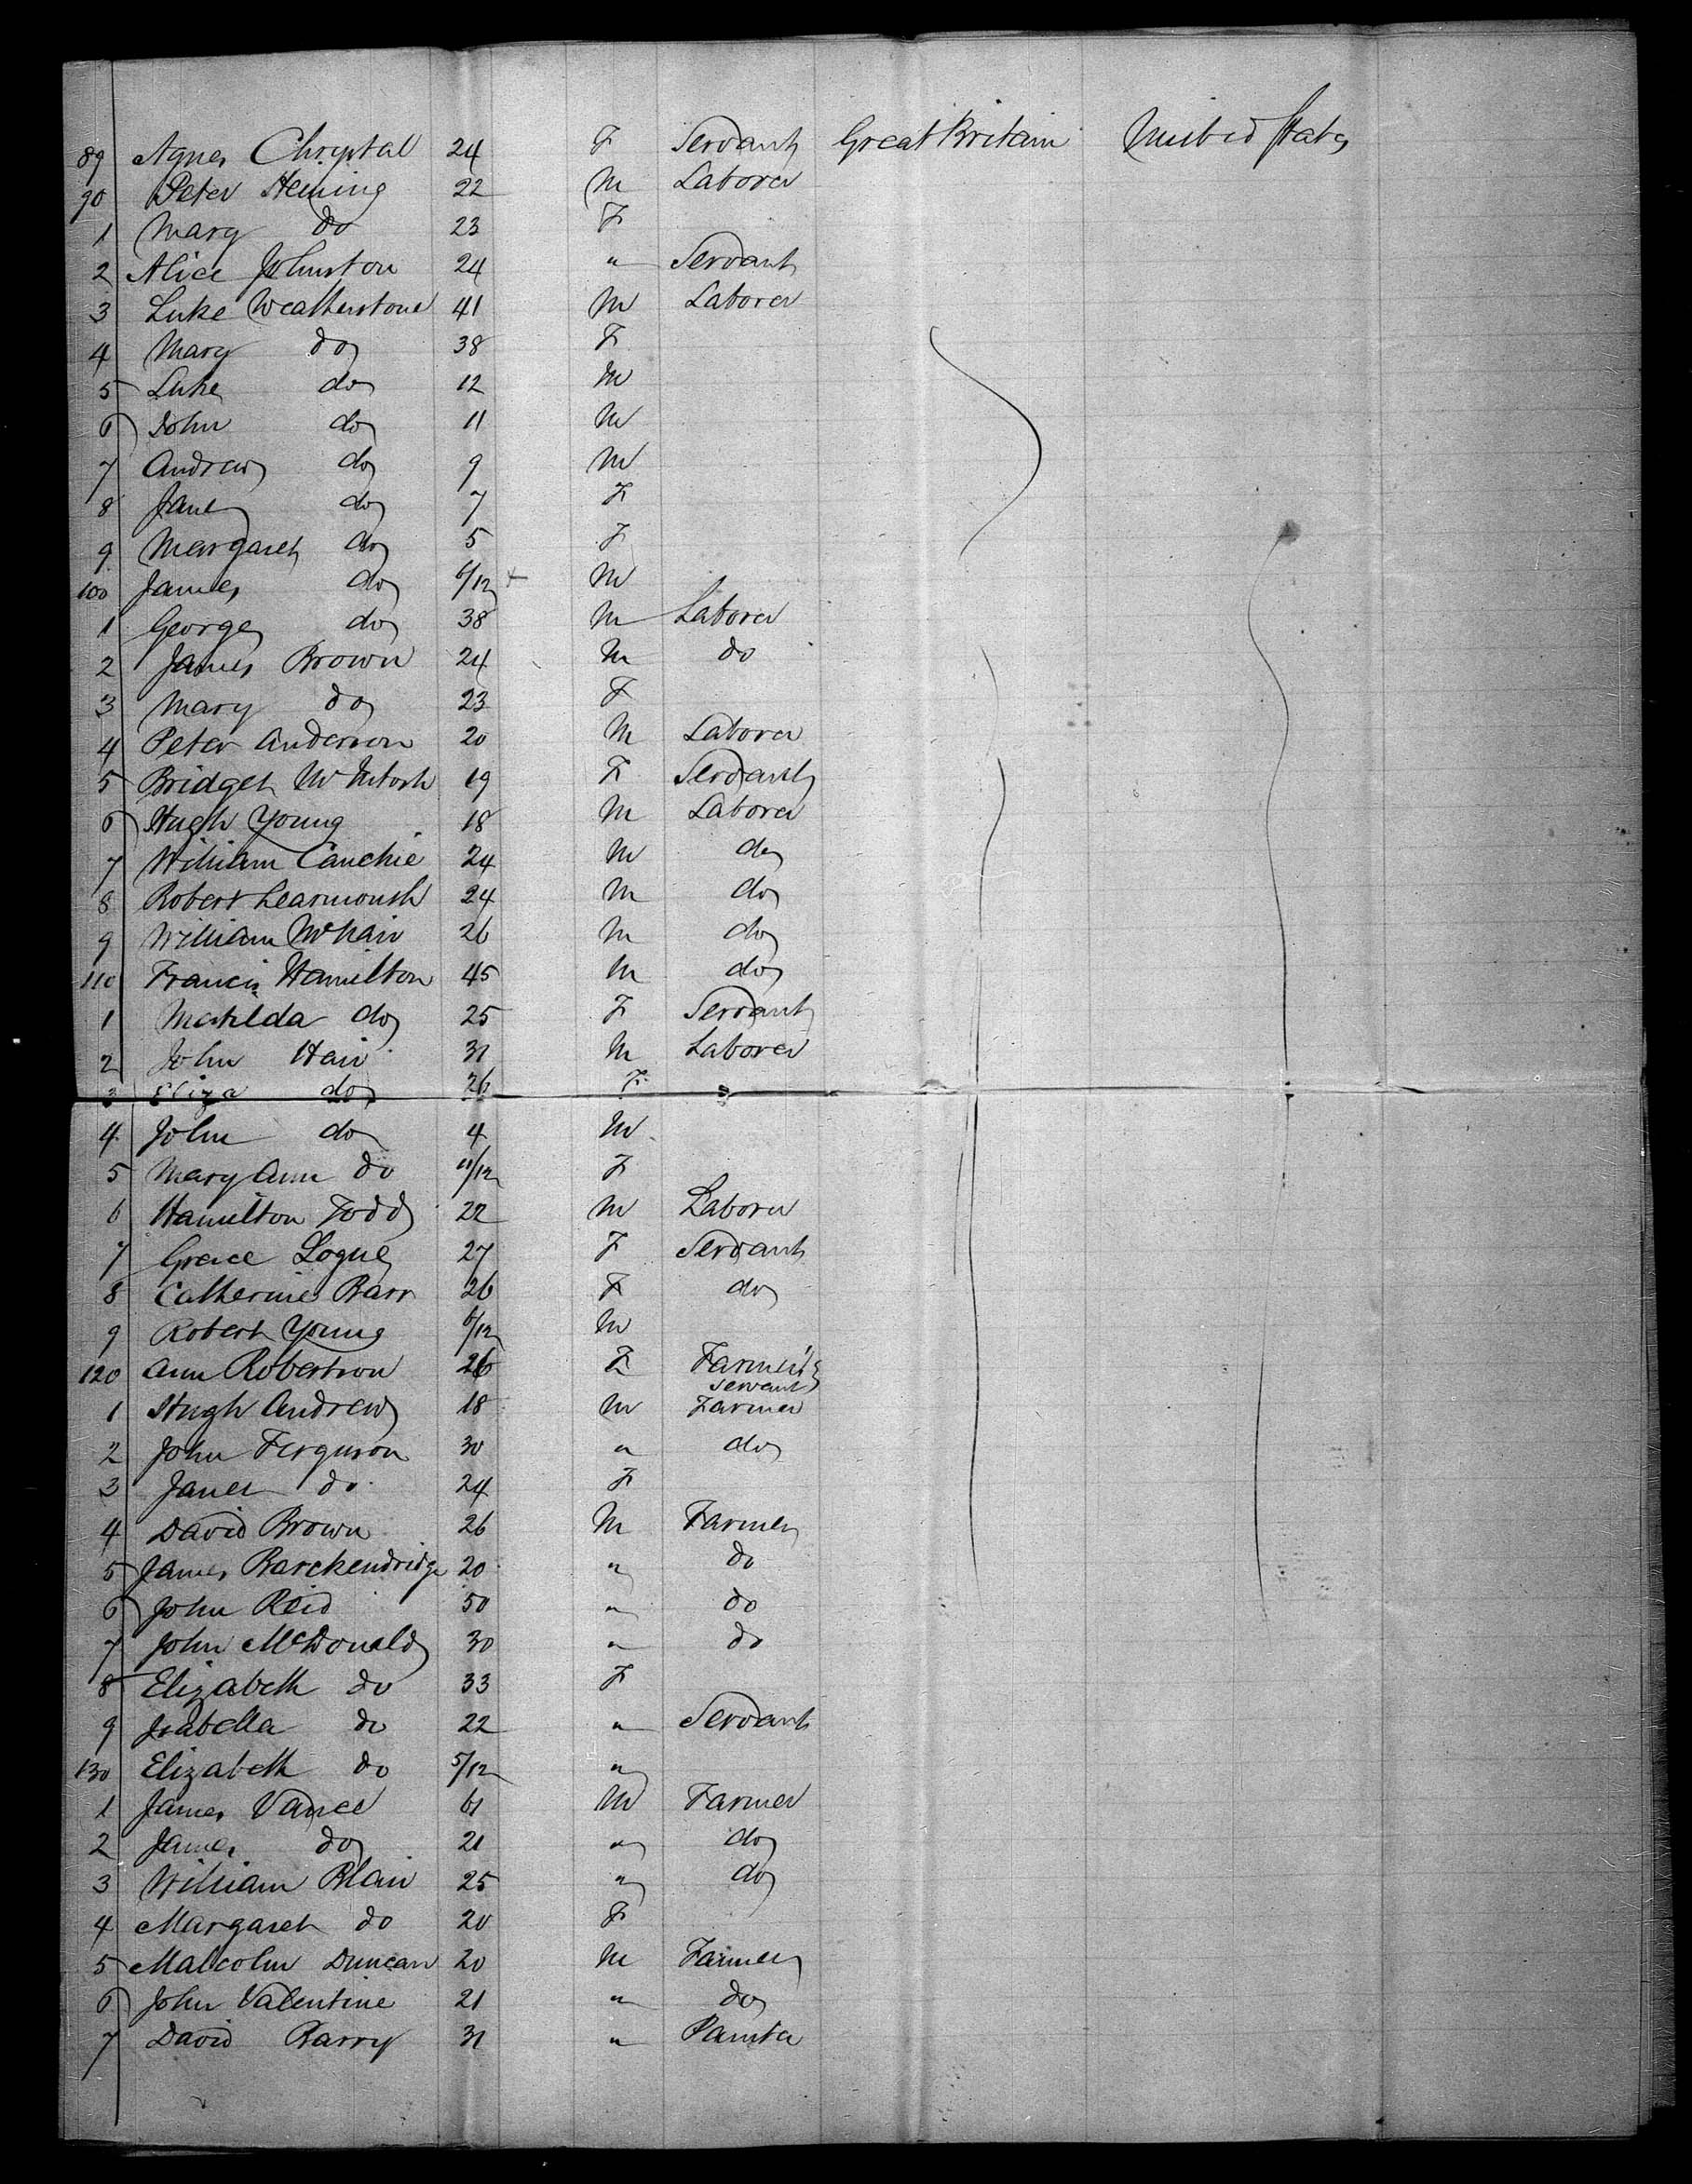 89 Agnes Chrystal 24 F Servant Great Britain United States
90 Peter Heming 22 M Laborer
1 Mary do 23 F
2 Alice Johnston 24 " Servant
3 Luke Weatherstone 41 M Laborer
4 Mary do 38 F
5 Luke do 12 M
6 John do 11 M
7 Andrew do 9 M
8 Jane do 7 F
9 Margaret do 5 F
100 James do 6/12 + M
1 George do 38 M Laborer
2 James Brown 24 M do
3 Mary do 23 F
4 Peter Anderson 20 M Laborer
5 Bridget McIntosh 19 F Servant
6 Hugh Young 18 M Laborer
7 William Cauchie 24 M do
8 Robert Learmonth 24 M do
9 William McNair 26 M do
110 Francis Hamilton 45 M do
1 Matilda do 25 F Servant
2 John Hair 31 M Laborer
3 Eliza do 26 F
4 John do 4 M
5 Mary Ann do 11/12 F
6 Hamilton Todd 22 M Laborer
7 Grace Logue 27 F Servant
8 Catherine Barr 26 F do
9 Robert Young 6/12 M
120 Ann Robertson 26 F Farmer's
servant
1 Hugh Andrew 18 M Farmer
2 John Ferguson 30 " do
3 Janet do 24 F
4 David Brown 26 M Farmer
5 James Barckendridge 20 " do
6 John Reid 50 " do
7 John McDonald 30 " do
8 Elizabeth do 33 F
9 Isabella do 22 " Servant
130 Elizabeth do 5/12 "
1 James Vance 61 M Farmer
2 James do 21 " do
3 William Blair 25 " do
4 Margaret do 20 F
5 Malcolm Duncan 20 M Farmer
6 John Valentine 21 " do
7 David Barry 31 " Painter